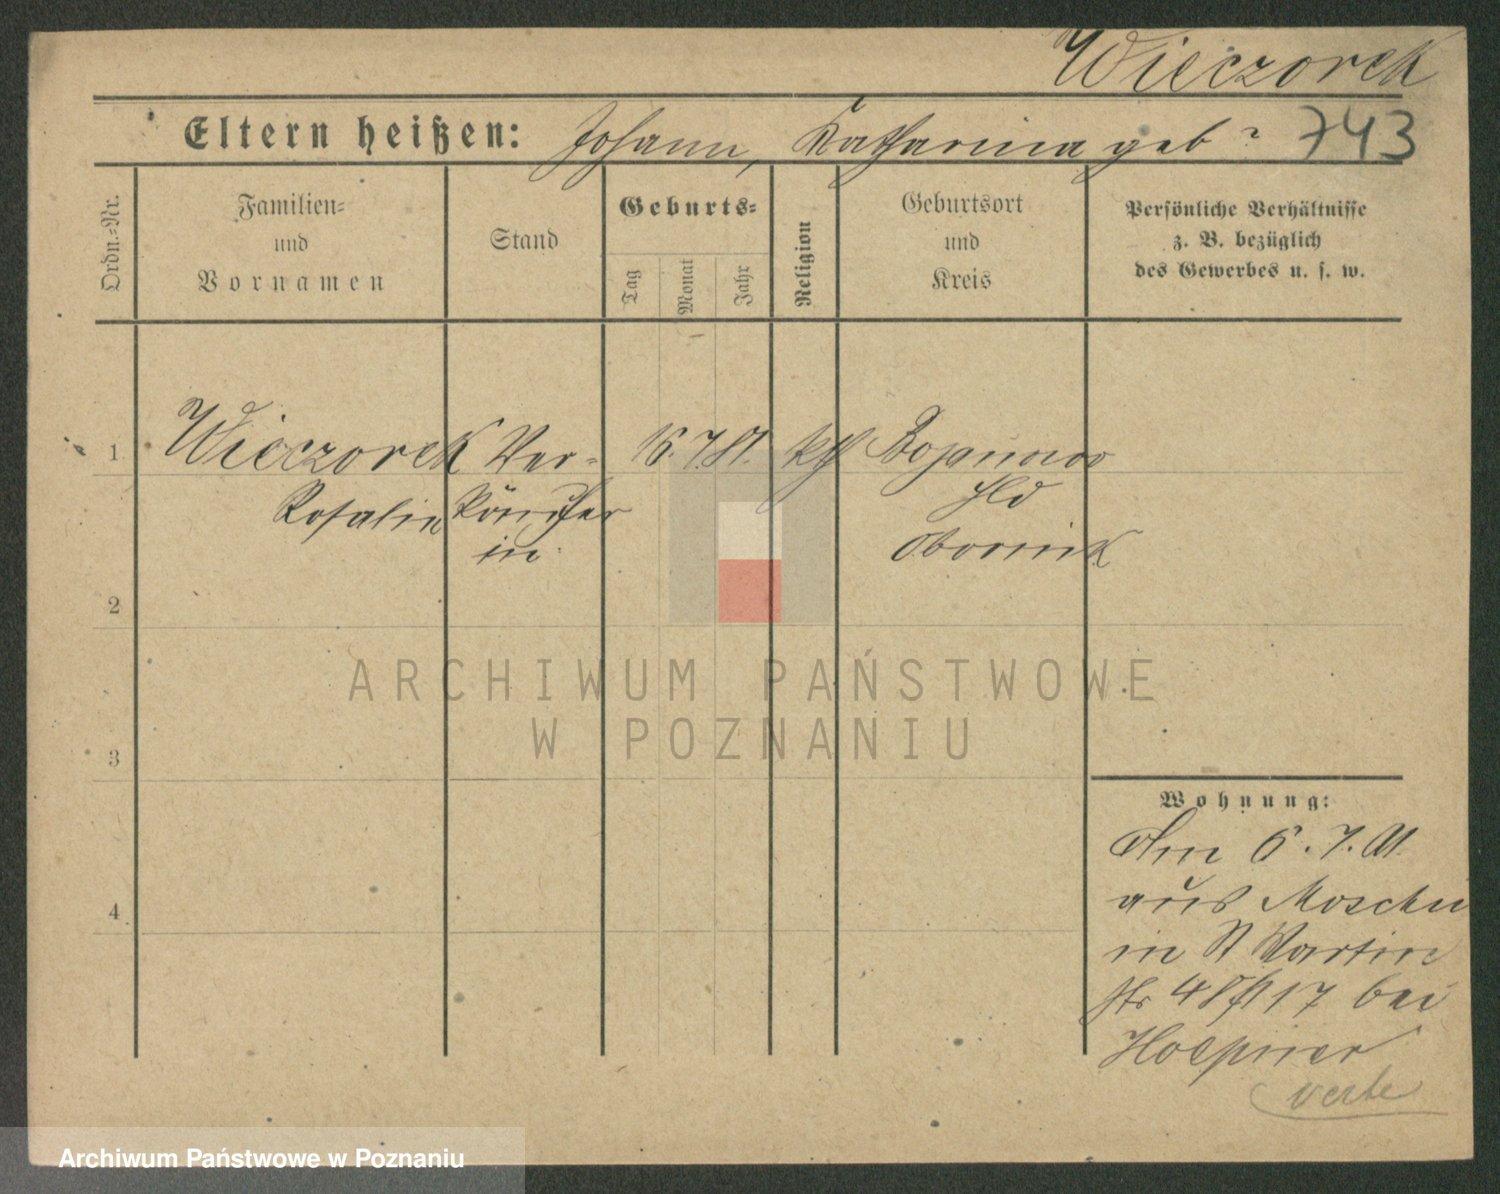 Wieczorek
Eltern heißen: Johann, Katharina geb ? 743
Ordn.=Nr.
Familien=
und
Vornamen
Stand
Geburts=
Tag
Monat
Jahr
Religion
Geburtsort
und
Kreis
Persönliche Verhältnisse
z. B. bezüglich
des Gewerbes u. s. w.
1 Wieczorek Ver- 16. 7. 81. kth
Rosalie käufer
Hld
in Obornik
2
ARCHIWUM PAŃSTWOWE
W POZNANIU
3
Wohnung:
Am 6. 7. 01.
aus Moschin
in St Martin
str 48 17 bei
4
verte
Archiwum Państwowe w Poznaniu